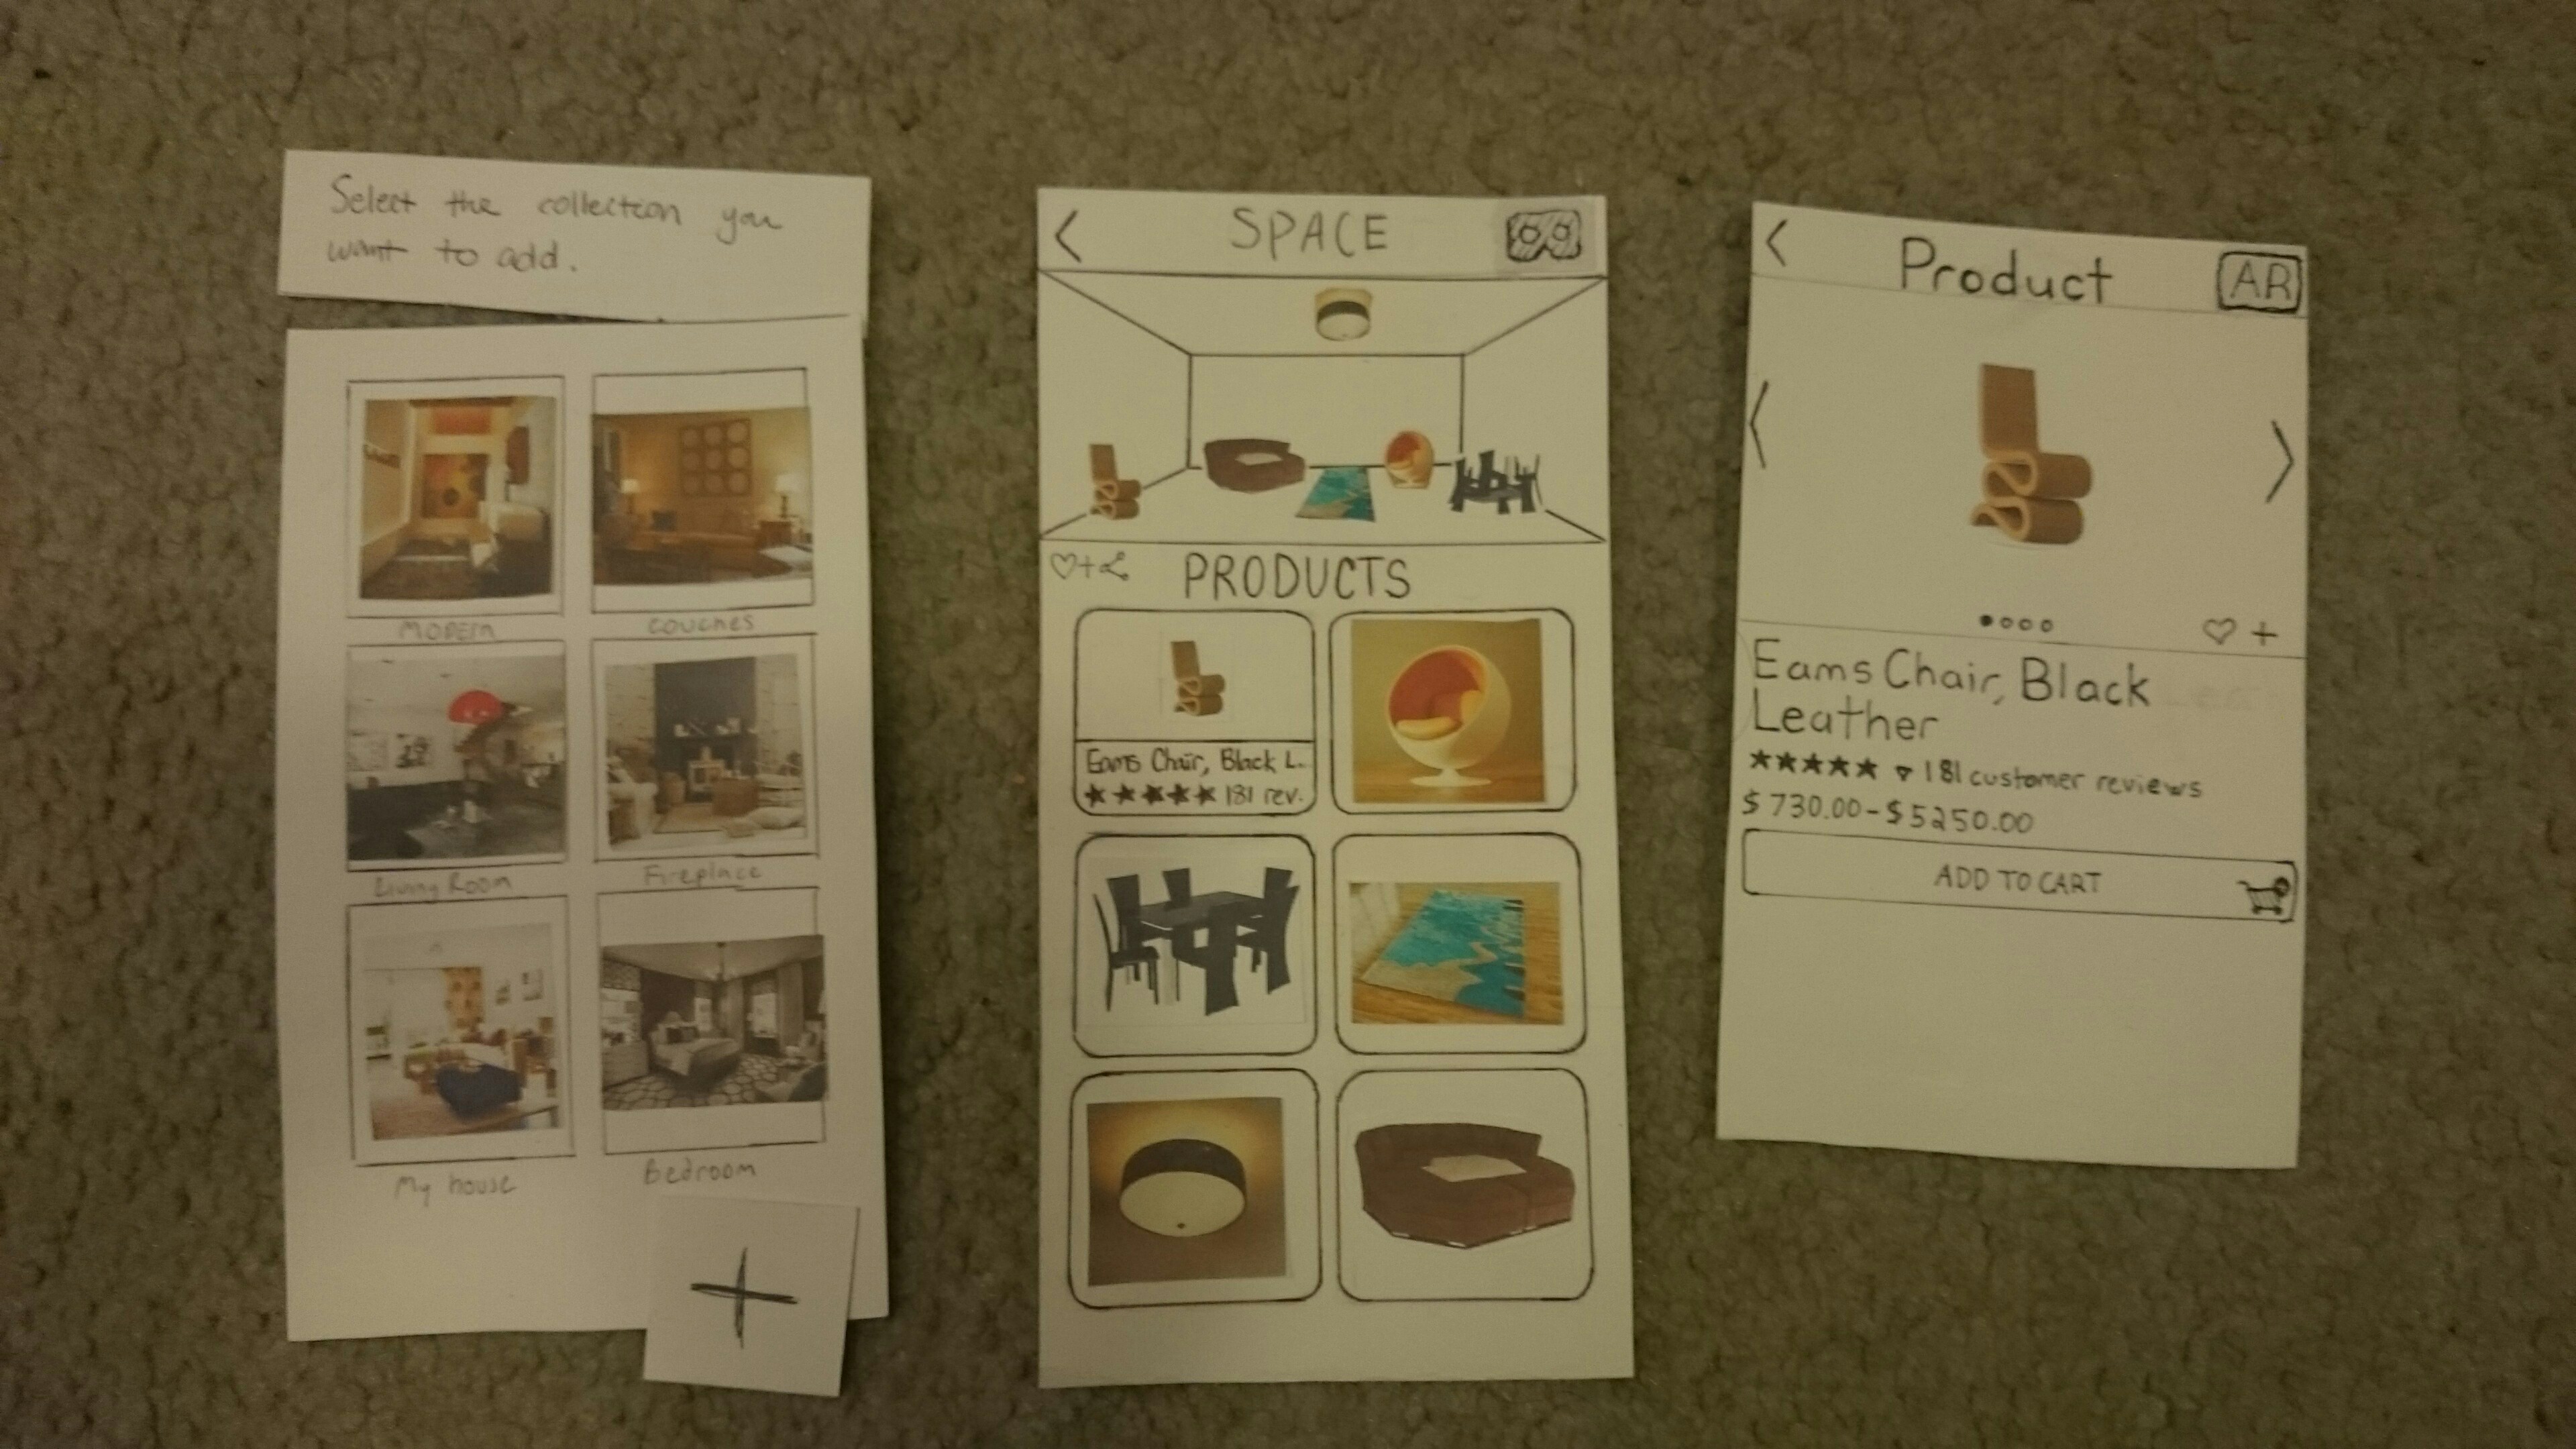 Select the collection you
want to add.
Modern
couches
Living Room
Fireplace
My house
Bedroom
+
< SPACE
PRODUCTS
Eams Chair, Black L.
★★★★★ 181 rev.
< Product AR
< >
Eams Chair, Black
Leather
★★★★★ ▿ 181 customer reviews
$730.00-$5250.00
ADD TO CART